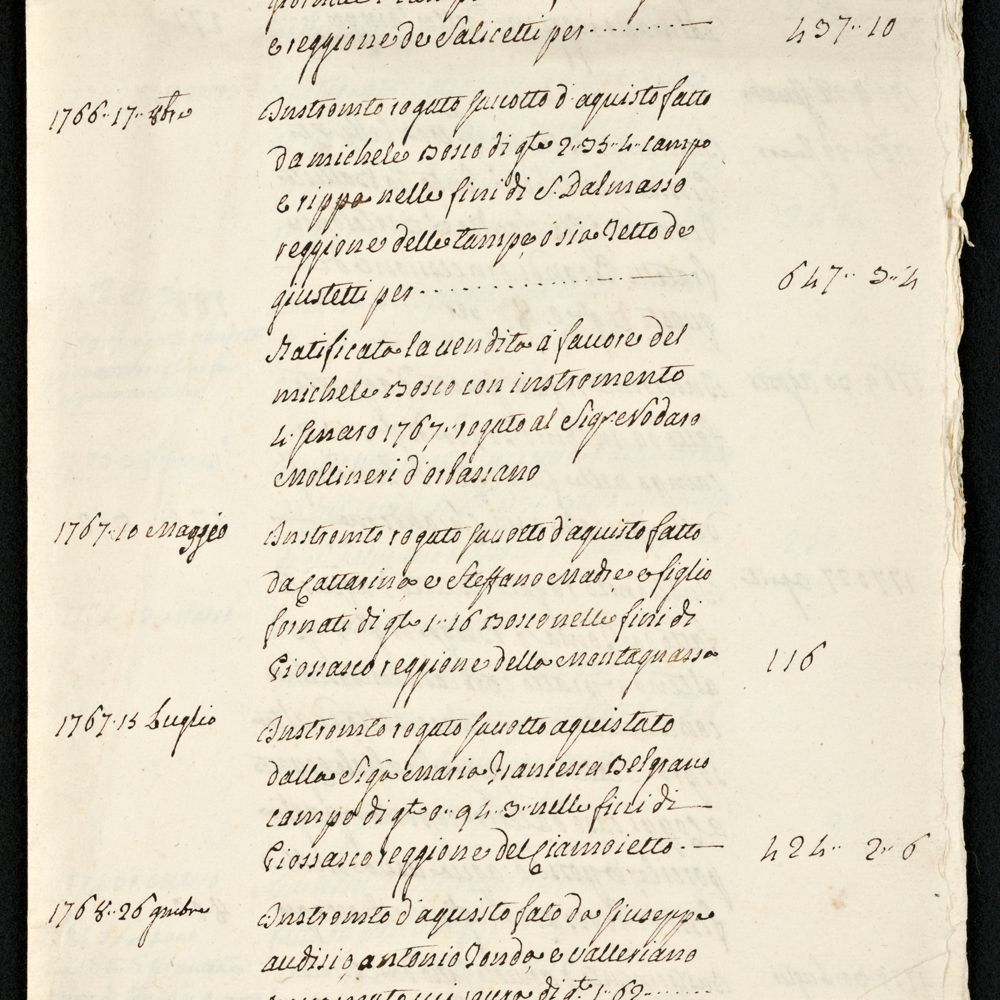 e reggione de Salicetti per ........ 437.. 10
1766.. 17.. 8bre Instromto rogato Suvotto d'aquisto fatto
da michele Bosco di qte 2.. 35.. 4.. campo
e rippa nelle fini di S. Dalmasso
reggione delle Lampe, ó sia Tetto de
giustetti per ................ 647.. 3.. 4
Ratificata la vendita á favore del
michele Bosco con instromento
4. Genaro 1767. rogato al Sigr Nodaro
Mollineri d'orbassano
1767.. 10 Maggio Instromto rogato Suvotto d'aquisto fatto
da Cattarina e Steffano Madre e figlio
fornati di qte 1.. 16 Bosco nelle fini di
Giossasco reggione della Montagnassa 116
1767.. 15 Luglio Instromto rogato Suvotto aquistato
dalla Sigra Maria Francesca Belgrano
campo di qte 0.. 94.. 3.. nelle fini di
Giossasco reggione del Ciamoietto. 424.. 2.. 6
1768.. 26 gmbre Instromto d'aquisto fato da Giuseppe
audisio, antonio Tonda, e valleriano
di qte 1.. 62